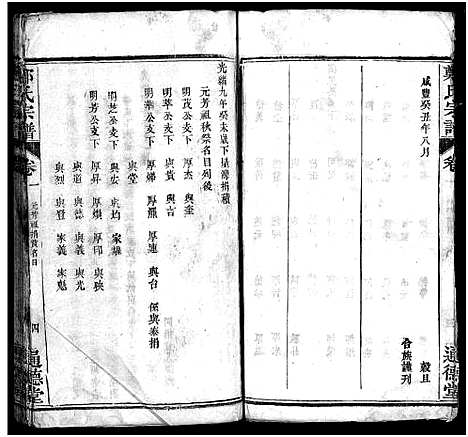 鄭氏宗譜
卷一
通德堂
咸豐癸丑年八月
穀旦
合族謹刊
光緒九年癸未歲下呈灣捐積
元芳祖秋祭名目列後
明茂公支下 厚杰 與奎
與貴 與吉
明華公支下 厚熊 厚連 與台 侄與泰捐
與堂
明芝公支下 與宏 與均 家雄
明芳公支下 厚昇 厚煥 厚印 與秧
與道 與德 與義 與光
與烈 與賢 家義 家魁
鄭氏宗譜
卷一
元芳祖捐貲名目
四
通德堂